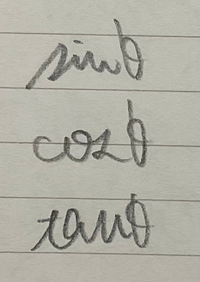 sinθ
cosθ
tanθ